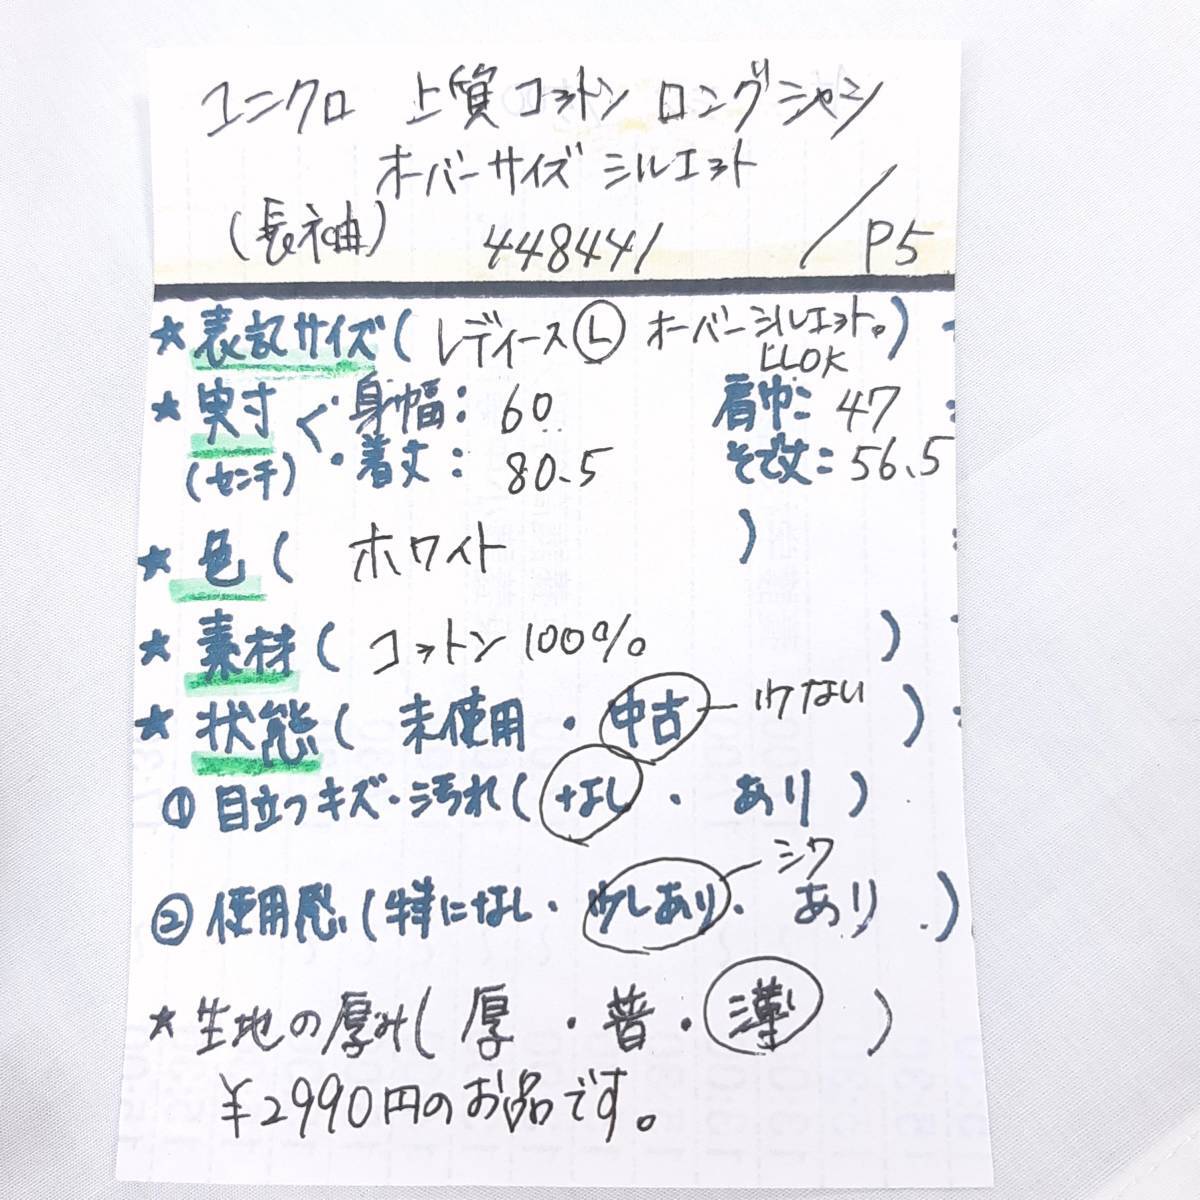 ユニクロ 上質コットン ロングシャツ
オーバーサイズシルエット
(長袖) 448441 / P5
★表記サイズ( レディースL オーバーシルエット。)
LLOK
★実寸 ・身幅: 60 肩巾: 47
(センチ) ・着丈: 80.5 そで丈: 56.5
★色( ホワイト )
★素材( コットン100% )
★状態( 未使用・中古 ー 少ない )
①目立つキズ・汚れ(なし・あり)
②使用感(特になし・少しあり・あり.) ー シワ
★生地の厚み(厚・普・薄)
¥2990円のお品です。